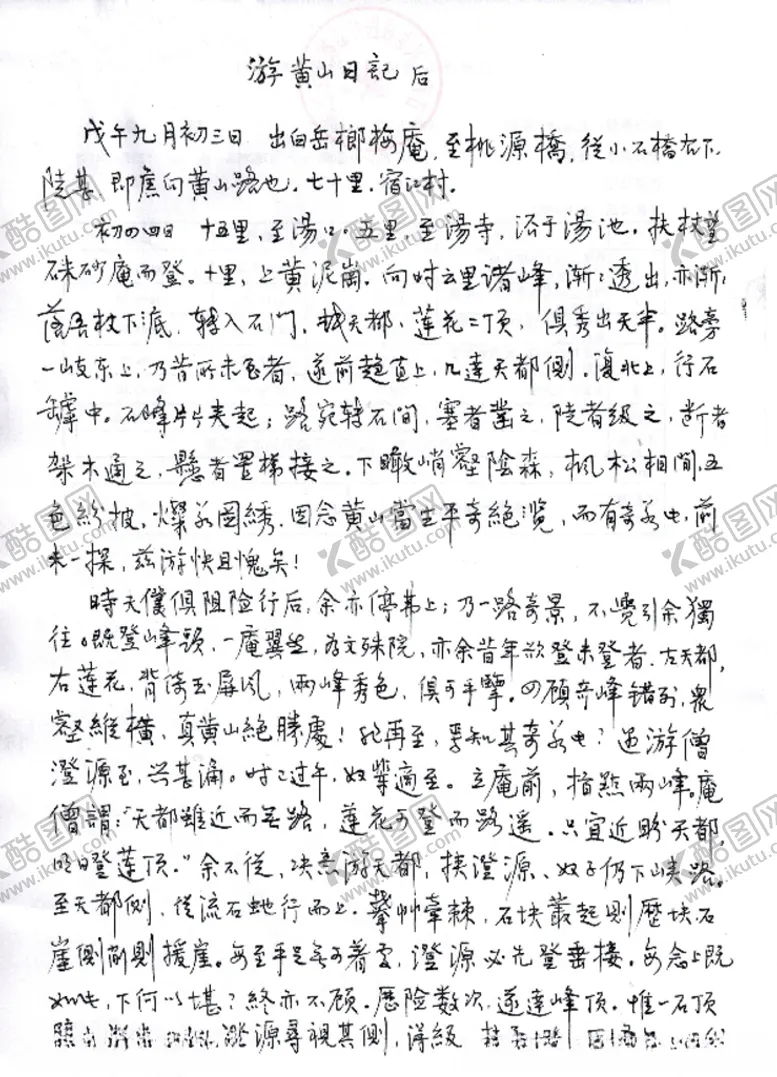 游黄山日記后
戊午九月初三日 出白岳榔梅庵，至桃源橋，從小石橋右下，
陡甚，即舊向黄山路也。七十里，宿江村。
初四日 十五里，至湯口。五里，至湯寺，浴于湯池。扶杖望
硃砂庵而登。十里，上黄泥崗。向时云里诸峰，渐：透出，亦渐：
落吾杖下底，轉入石门，越天都、蓮花二顶，俱秀出天半。路旁
一岐东上，乃昔所未至者，遂前趋直上，几達天都側。復北上，行石
罅中。石峰片片夹起；路宛转石间，塞者鑿之，陡者级之，断者
架木通之，懸者置梯接之。下瞰峭壑陰森，枫松相間，五
色紛披，燦若图綉。因念黄山當生平奇絶览，而有奇若此，前
未一探，兹游快且愧矣！
時夫僕俱阻险行后，余亦停弗上；乃一路奇景，不觉引余獨
往。既登峰頭，一庵翼然，为文殊院，亦余昔年欲登未登者。左天都，
右蓮花，背倚玉屏风，兩峰秀色，俱可手擥。四顾奇峰錯列，衆
壑維横，真黄山絶勝處！非再至，焉知其奇若此？遇游僧
澄源至，兴甚涌。时已过午，奴辈適至。立庵前，指點兩峰。庵
僧謂："天都雖近而无路，蓮花可登而路遥。只宜近盼天都，
明日登莲顶。"余不從，决意游天都，挟澄源、奴子仍下峡路。
至天都侧，從流石蛇行而上。攀草牽棘，石块叢起則歷块，石
崖側削則援崖。每至手足无可著处，澄源必先登垂接。每念上既
如此，下何以堪？終亦不顾。歷险数次，遂達峰顶。惟一石顶
澄源尋視其側，得级